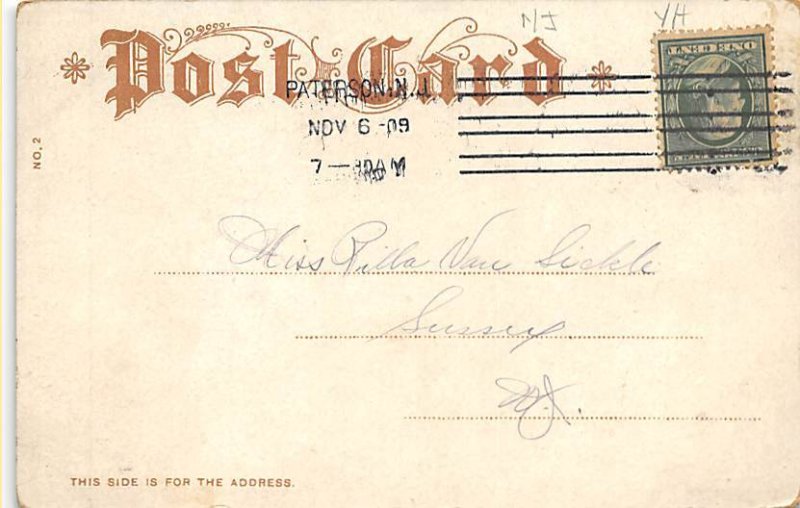 NJ YH
Post Card
PATERSON, N.J.
NOV 6 -09
7-30AM
NO. 2
Miss Rilla Van Sickle
Sussex
N.J.
THIS SIDE IS FOR THE ADDRESS.
ONE CENT